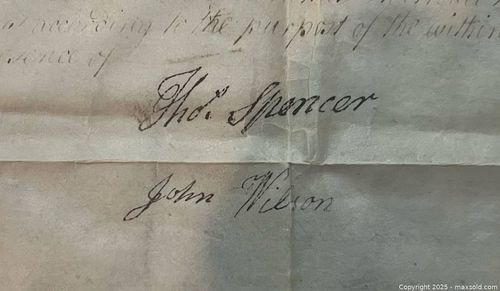 according to the purport of the within
sence of
Thos. Spencer
John Wilson
Copyright 2025 - maxsold.com